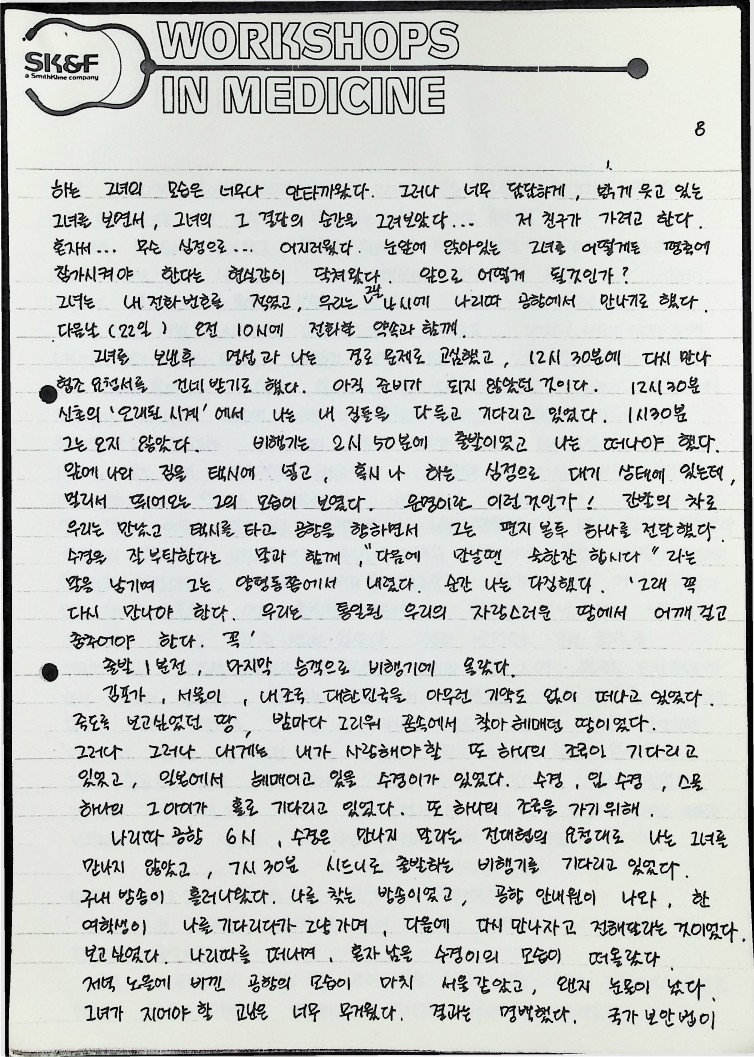 SK&F
a SmithKline company
WORKSHOPS
IN MEDICINE
8
하는 그녀의 모습은 너무나 안타까왔다. 그러나 너무 담담하게, 밝게 웃고 있는
그녀를 보면서, 그녀의 그 결단의 순간을 그려보았다... 저 친구가 가려고 한다.
혼자서... 무슨 심정으로... 어지러웠다. 눈앞에 앉아있는 그녀를 어떻게든 평축에
참가시켜야 한다는 현실감이 닥쳐왔다. 앞으로 어떻게 될것인가?
그녀는 내 전화번호를 적었고, 우리는 4시에 나리따 공항에서 만나기로 했다.
다음날 (22일) 오전 10시에 전화할 약속과 함께.
그녀를 보낸후 명성과 나는 경로 문제로 고심했고, 12시 30분에 다시 만나
협조 요청서를 건네 받기로 했다. 아직 준비가 되지 않았던 것이다. 12시 30분
신촌의 '오래된 시계'에서 나는 내 짐들을 다 들고 기다리고 있었다. 1시30분
그는 오지 않았다. 비행기는 2시 50분에 출발이었고 나는 떠나야 했다.
앞에 나와 짐을 택시에 넣고, 혹시나 하는 심정으로 대기 상태에 있는데,
멀리서 뛰어오는 그의 모습이 보였다. 운명이란 이런것인가! 간발의 차로
우리는 만났고 택시를 타고 공항을 향하면서 그는 편지 봉투 하나를 전달했다.
수경을 잘 부탁한다는 말과 함께, "다음에 만날땐 술한잔 합시다" 라는
말을 남기며 그는 양평동쯤에서 내렸다. 순간 나는 다짐했다. '그래 꼭
다시 만나야 한다. 우리는 통일된 우리의 자랑스러운 땅에서 어깨 걸고
춤추어야 한다. 꼭'
출발 1분전, 마지막 승객으로 비행기에 올랐다.
김포가, 서울이, 내조국 대한민국을 아무런 기약도 없이 떠나고 있었다.
죽도록 보고싶었던 땅, 밤마다 그리워 꿈속에서 찾아 헤매던 땅이었다.
그러나 그러나 내게는 내가 사랑해야할 또 하나의 조국이 기다리고
있었고, 일본에서 헤매이고 있을 수경이가 있었다. 수경, 임 수경, 스물
하나의 그 아이가 홀로 기다리고 있었다. 또 하나의 조국을 가기위해.
나리따 공항 6시, 수경은 만나지 말라는 전대협의 요청대로 나는 그녀를
만나지 않았고, 7시 30분 시드니로 출발하는 비행기를 기다리고 있었다.
구내 방송이 흘러나왔다. 나를 찾는 방송이었고, 공항 안내원이 나와, 한
여학생이 나를 기다리다가 그냥 가며, 다음에 다시 만나자고 전해달라는 것이었다.
보고 싶었다. 나리따를 떠나며, 혼자 남을 수경이의 모습이 떠올랐다.
저녁 노을에 비낀 공항의 모습이 마치 서울 같았고, 왠지 눈물이 났다.
그녀가 지어야 할 고난은 너무 무거웠다. 결과는 명백했다. 국가 보안법이